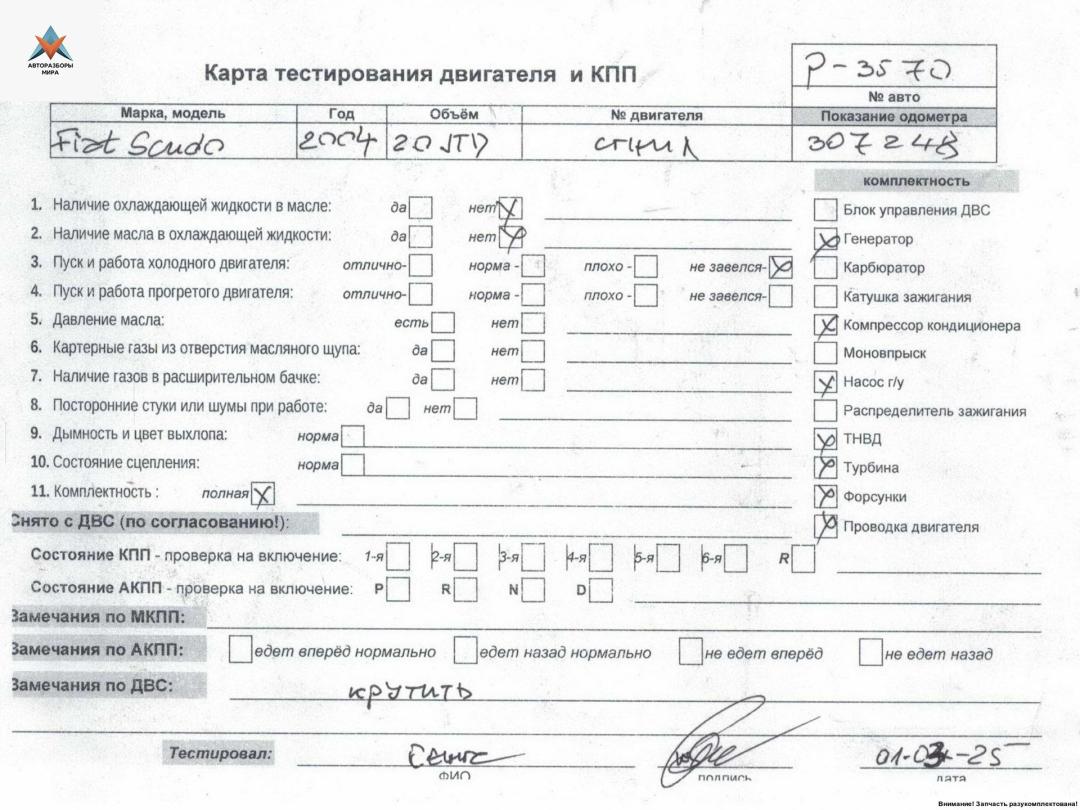 АВТОРАЗБОРЫ
МИРА
Карта тестирования двигателя и КПП
P-3570
№ авто
Марка, модель Год Объём № двигателя Показание одометра
Fiat Scudo 2004 2.0 JTD сгнил 307248
комплектность
1. Наличие охлаждающей жидкости в масле: да нет
Блок управления ДВС
2. Наличие масла в охлаждающей жидкости: да нет
Генератор
3. Пуск и работа холодного двигателя: отлично- норма - плохо - не завелся-
Карбюратор
4. Пуск и работа прогретого двигателя: отлично- норма - плохо - не завелся-
Катушка зажигания
5. Давление масла: есть нет
Компрессор кондиционера
6. Картерные газы из отверстия масляного щупа: да нет
Моновпрыск
7. Наличие газов в расширительном бачке: да нет
Насос г/у
8. Посторонние стуки или шумы при работе: да нет
Распределитель зажигания
9. Дымность и цвет выхлопа: норма
ТНВД
10. Состояние сцепления: норма
Турбина
11. Комплектность : полная
Форсунки
Снято с ДВС (по согласованию!):
Проводка двигателя
Состояние КПП - проверка на включение: 1-я 2-я 3-я 4-я 5-я 6-я R
Состояние АКПП - проверка на включение: P R N D
Замечания по МКПП:
Замечания по АКПП: едет вперёд нормально едет назад нормально не едет вперёд не едет назад
Замечания по ДВС: крутить
Тестировал:
ФИО подпись дата
Внимание! Запчасть разукомплектована!